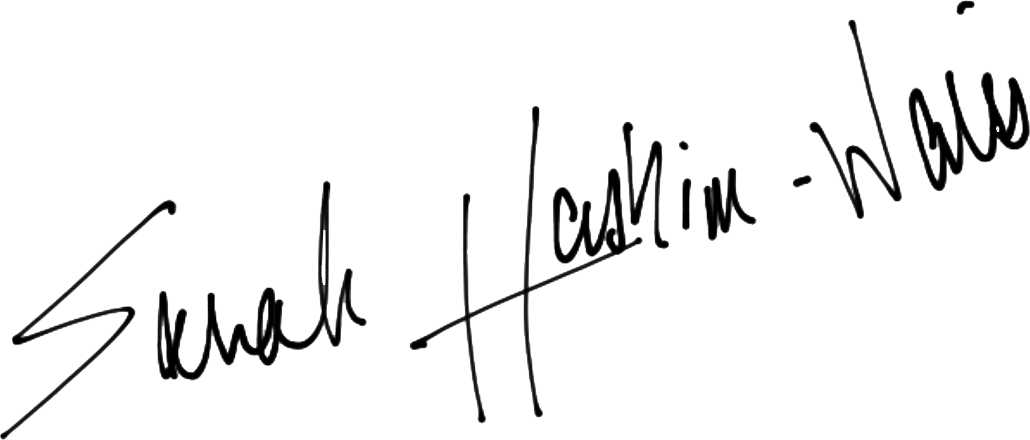 Sarah Hashim-Waris